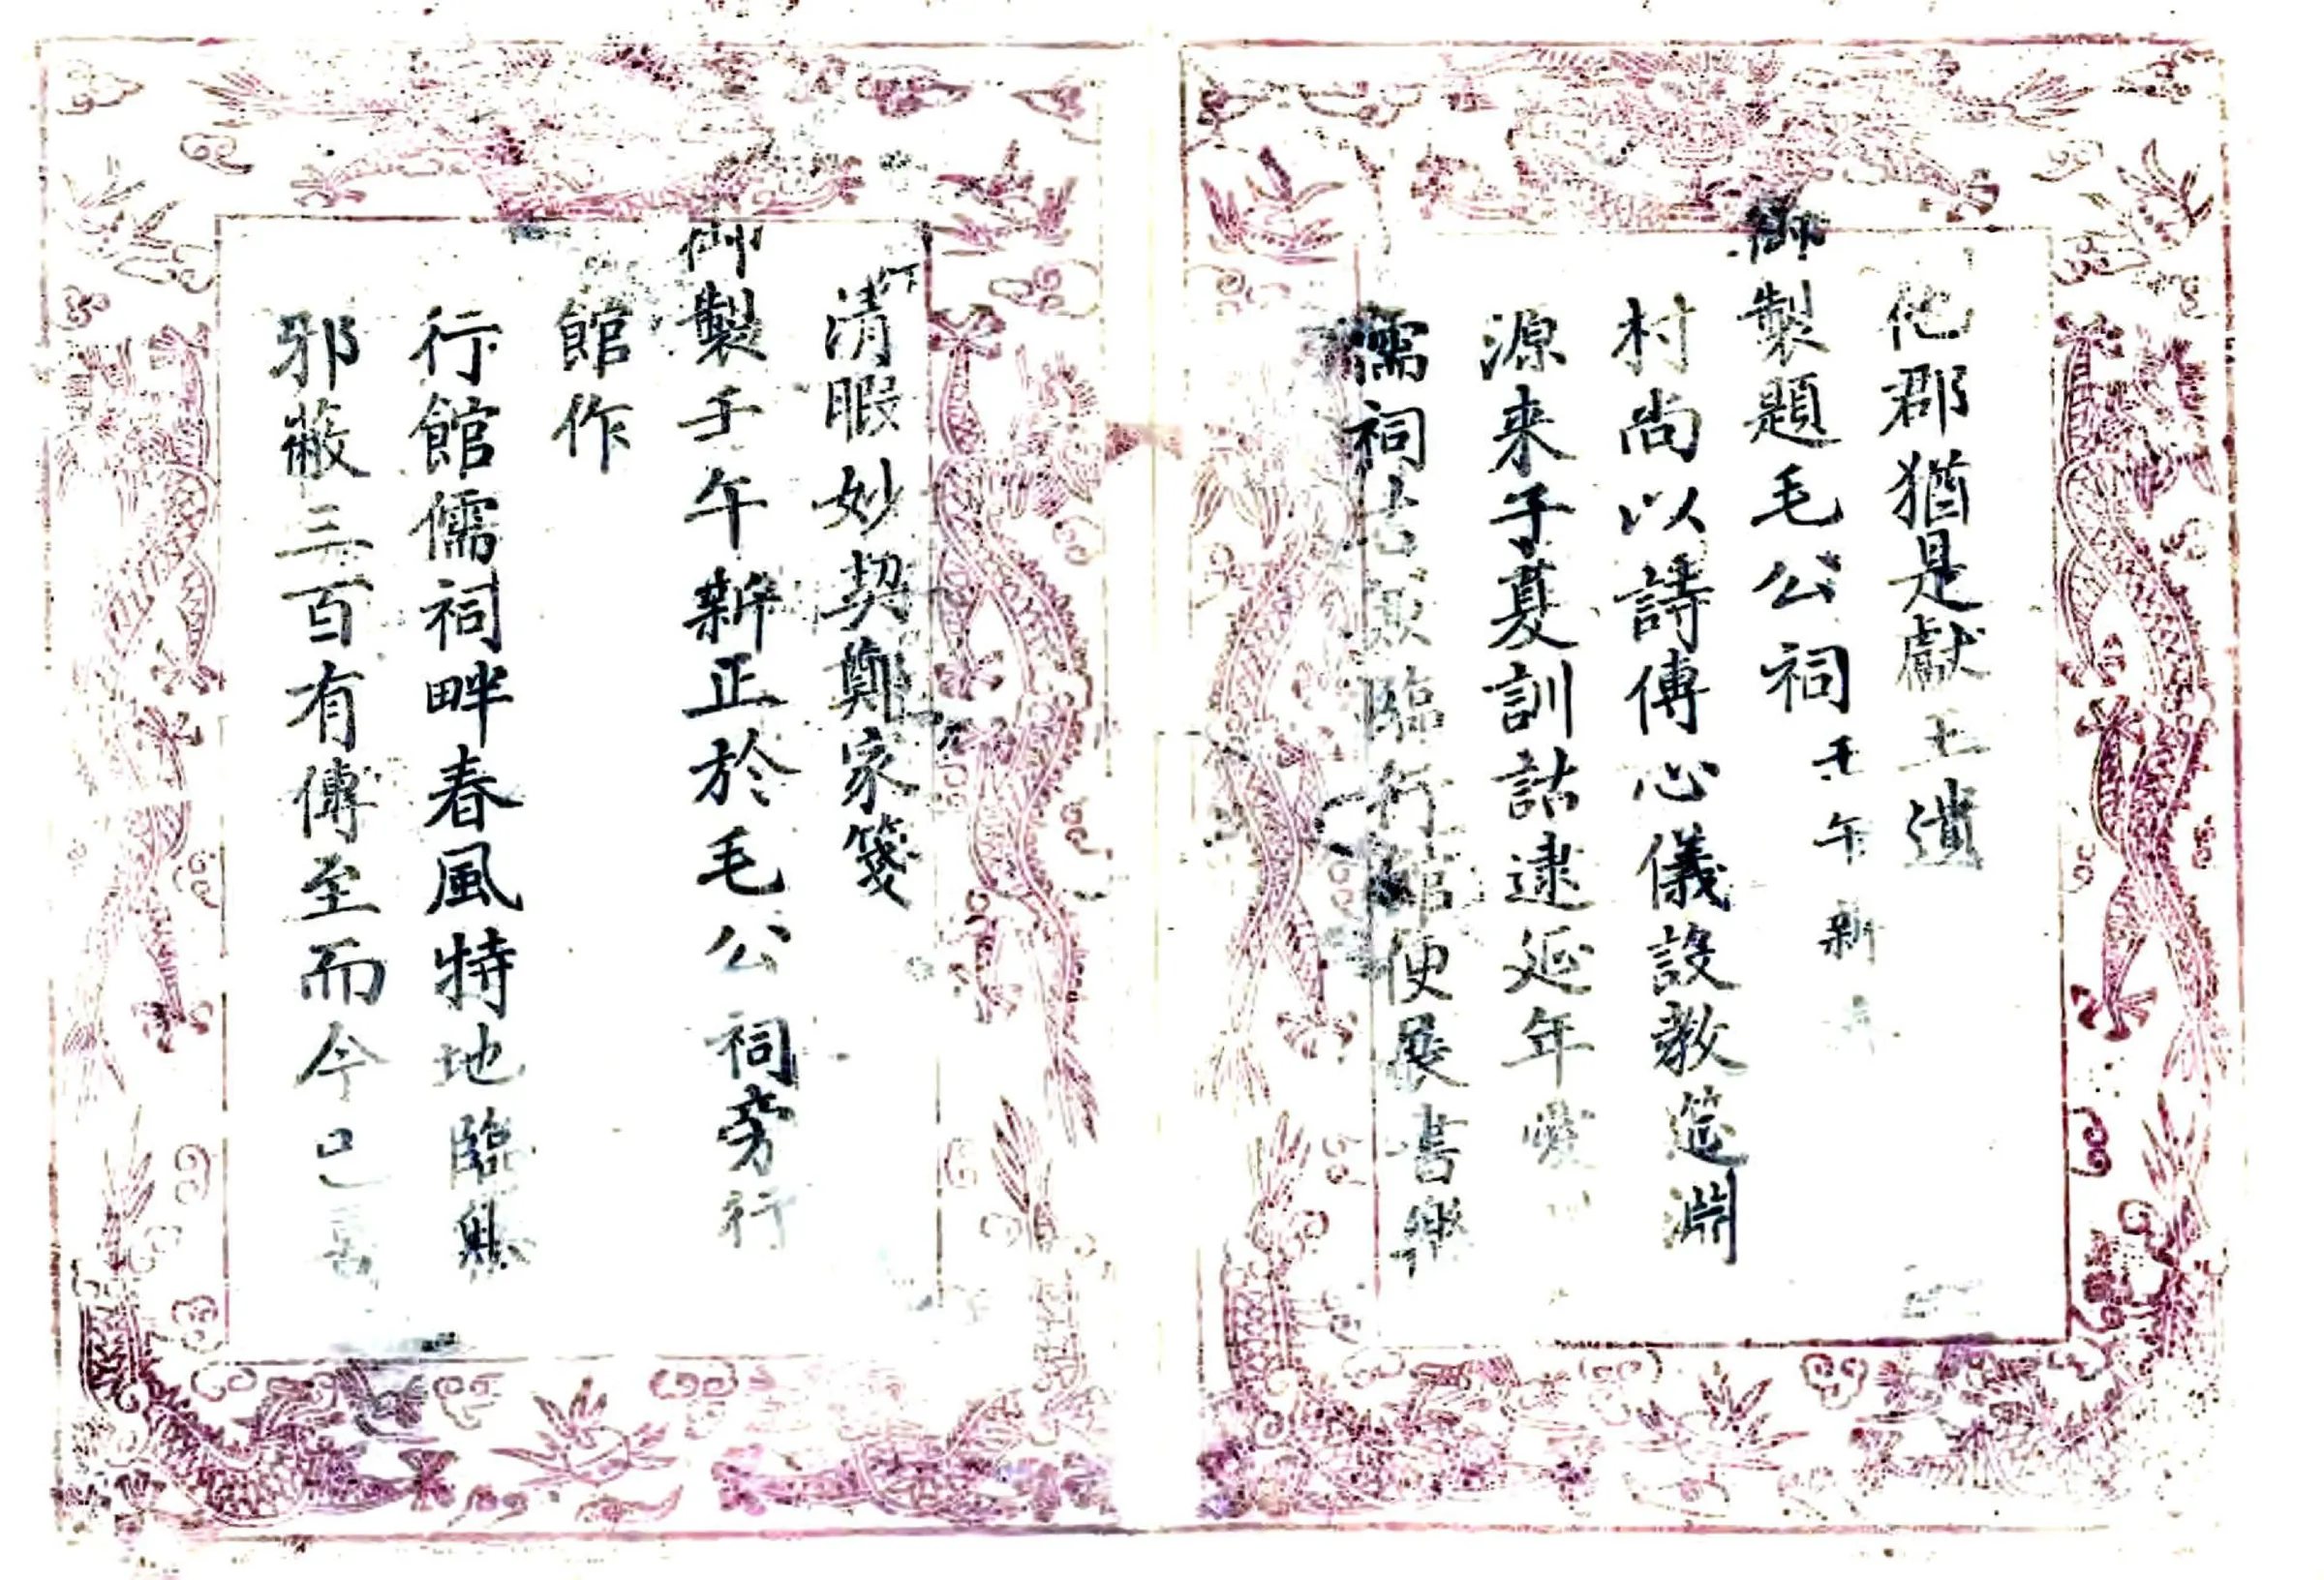 他郡猶是獻王遺
御製題毛公祠壬午新
村尚以詩傳心儀設教筵淵
源来子夏訓詁逮延年愛
儒祠古臨行館便展書樂
清暇妙契鄭家箋
御製壬午新正於毛公祠旁行
館作
行館儒祠畔春風特地臨無
邪蔽三百有傳至而今已喜